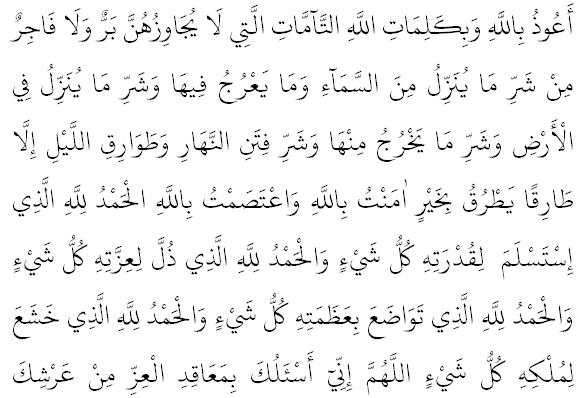 أَعُوذُ بِاللَّهِ وَبِكَلِمَاتِ اللَّهِ التَّآمَّاتِ الَّتِي لَا يُجَاوِزُهُنَّ بَرٌّ وَلَا فَاجِرٌ
مِنْ شَرِّ مَا يُنَزِّلُ مِنَ السَّمَآءِ وَمَا يَعْرُجُ فِيهَا وَشَرِّ مَا يُنَزِّلُ فِي
الْأَرْضِ وَشَرِّ مَا يَخْرُجُ مِنْهَا وَشَرِّ فِتَنِ النَّهَارِ وَطَوَارِقِ اللَّيْلِ إِلَّا
طَارِقًا يَطْرُقُ بِخَيْرٍ اٰمَنْتُ بِاللَّهِ وَاعْتَصَمْتُ بِاللَّهِ الْحَمْدُ لِلَّهِ الَّذِي
إِسْتَسْلَمَ لِقُدْرَتِهِ كُلُّ شَيْءٍ وَالْحَمْدُ لِلَّهِ الَّذِي ذُلَّ لِعِزَّتِهِ كُلُّ شَيْءٍ
وَالْحَمْدُ لِلَّهِ الَّذِي تَوَاضَعَ بِعَظَمَتِهِ كُلُّ شَيْءٍ وَالْحَمْدُ لِلَّهِ الَّذِي خَشَعَ
لِمُلْكِهِ كُلُّ شَيْءٍ اللَّهُمَّ إِنِّيٓ أَسْئَلُكَ بِمَعَاقِدِ الْعِزِّ مِنْ عَرْشِكَ